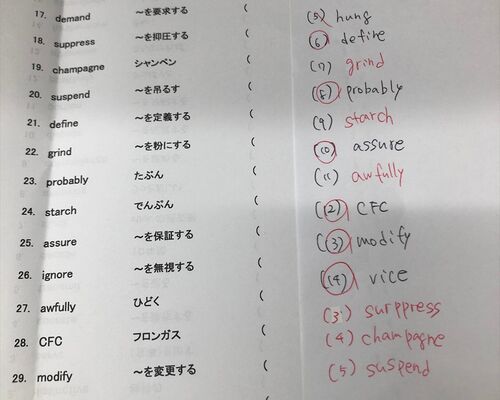 17. demand ～を要求する (
18. suppress ～を抑圧する (
19. champagne シャンペン (
20. suspend ～を吊るす (
21. define ～を定義する (
22. grind ～を粉にする (
23. probably たぶん (
24. starch でんぷん (
25. assure ～を保証する (
26. ignore ～を無視する (
27. awfully ひどく (
28. CFC フロンガス (
29. modify ～を変更する (
(5) hung
(6) define
(7) grind
(8) probably
(9) starch
(10) assure
(11) awfully
(12) CFC
(13) modify
(14) vice
(3) surppress
(4) champagne
(5) suspend